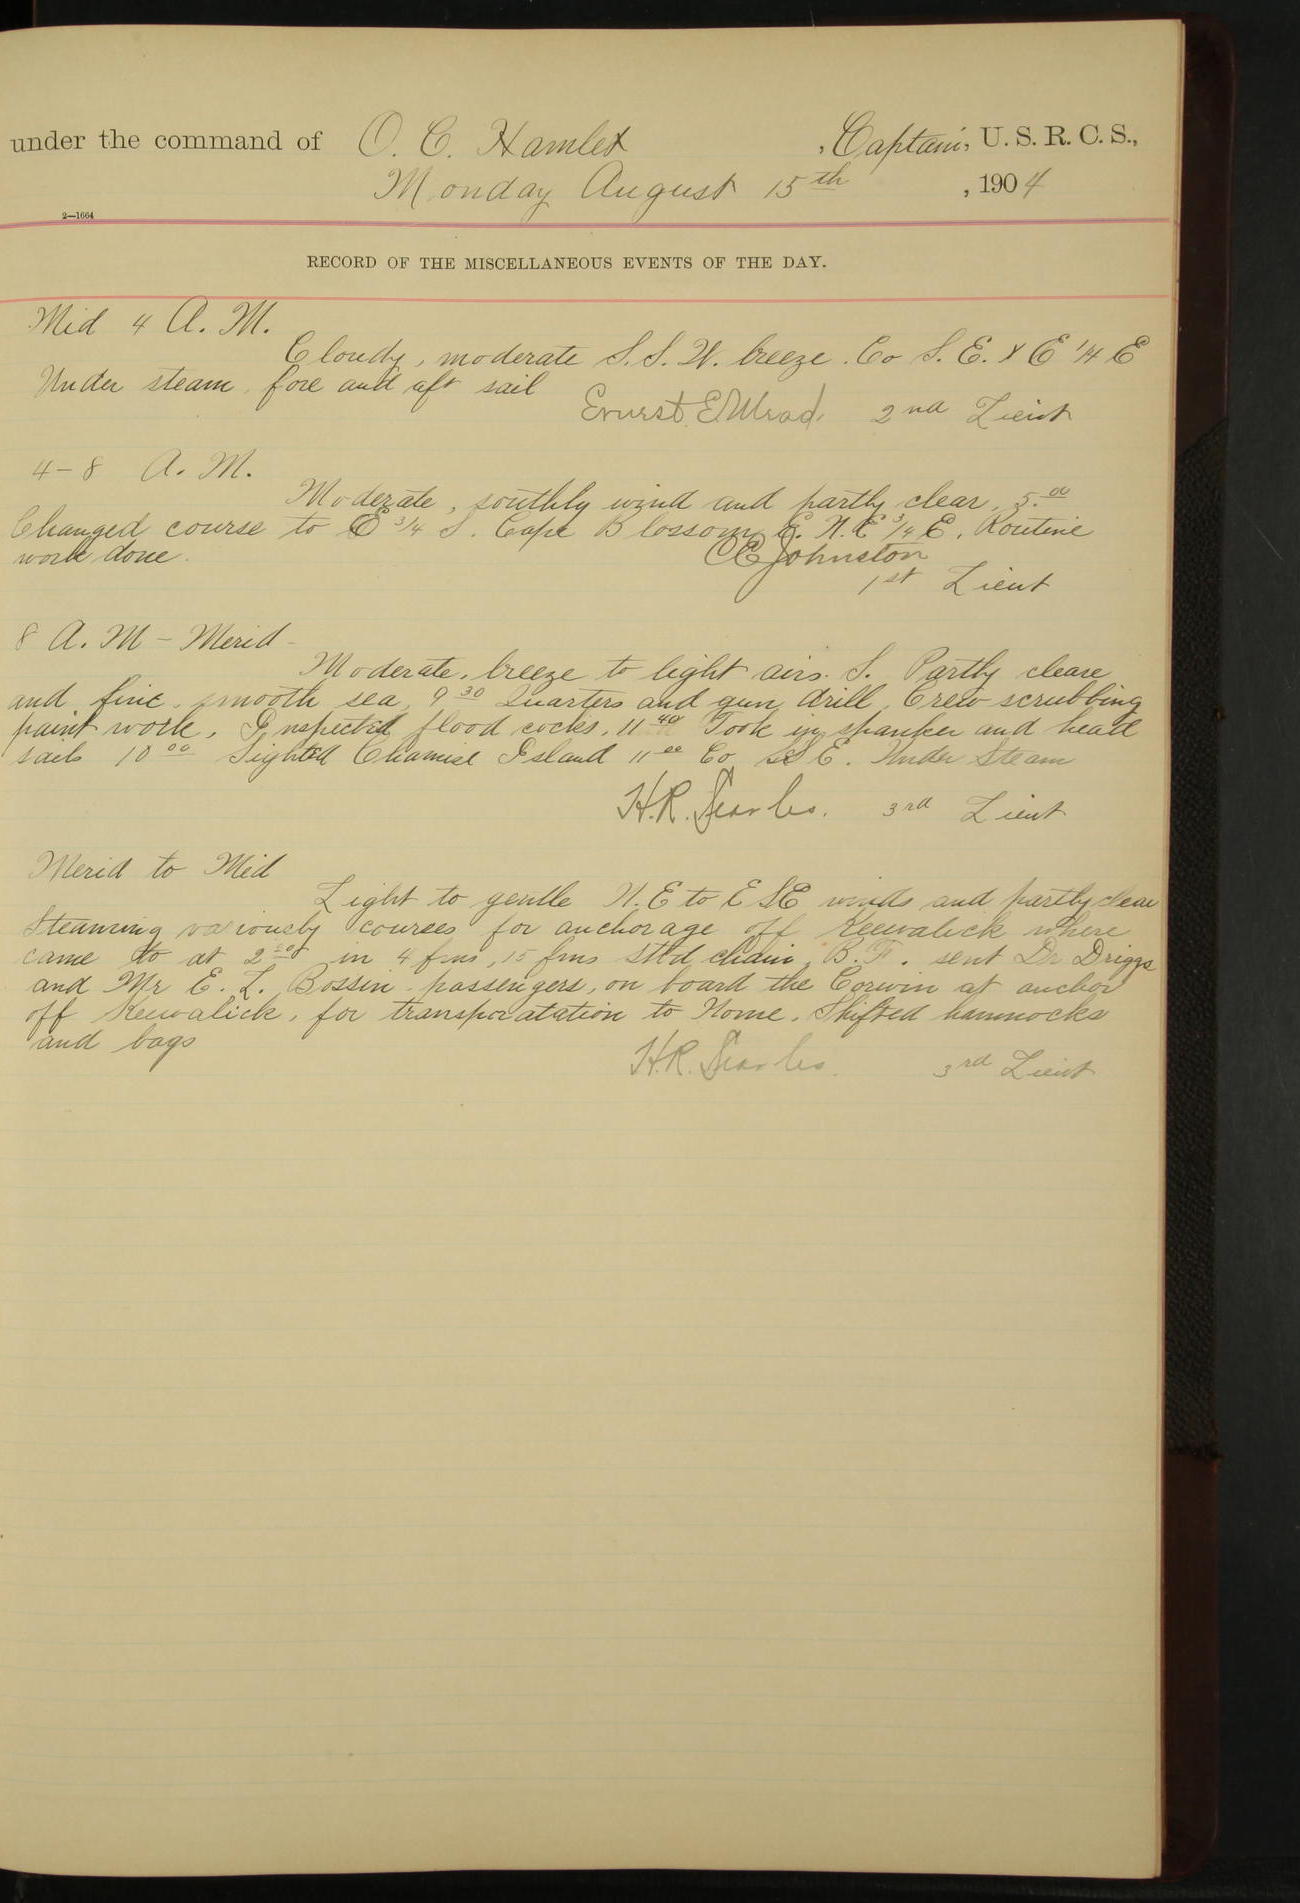 under the command of O. C. Hamlet , Captain, U. S. R. C. S.,
Monday August 15th , 1904
2—1664
RECORD OF THE MISCELLANEOUS EVENTS OF THE DAY.
Mid 4 A. M.
Cloudy, moderate S. S. W. breeze. Co S. E. X E 1/4 E
Under steam, fore and aft sail
Ernest E. Mead 2nd Lieut
4-8 A. M.
Moderate, southly wind and partly clear, 5.00
Changed course to E 3/4 S. Cape Blossom E. N. E 3/4 E. Routine
work done.
C E Johnston
1st Lieut
8 A. M - Merid -
Moderate, breeze to light airs. S. Partly cleare
and fine, smooth sea, 9 30 Quarters and gun drill, Crew scrubbing
paint work, Inspected flood cocks, 11 40 Took in spanker and head
sails 10 00 Sighted Chamise Island 11 00 Co E. Under Steam
H. R. Searles. 3rd Lieut
Merid to Mid
Light to gentle N. E to E SE winds and partly clear
Steaming variously courses for anchorage off Keewalick where
came to at 2 in 4 fms, 15 fms Stbd chain, B. F. sent Dr Driggs
and Mr E. L. Bossin passengers, on board the Corwin at anchor
off Keewalick, for transporatation to Nome. Shifted hammocks
and bags
H. R. Searles. 3rd Lieut